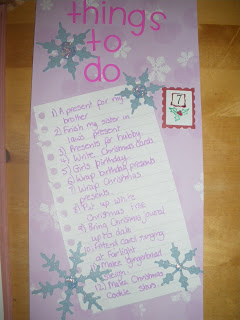 things
to
do
7
1) A present for my
brother
2) Finish my sister in
laws present
3) Presents for hubby
4) Write Christmas cards
5) Girls birthday
6) Wrap birthday presents
7) Wrap Christmas
presents
8) Put up white
Christmas tree
9) Bring Christmas journal
up to date
10) Attend carol singing
at Fairlight
11) Make gingerbread
12) Make Christmas
Cookie stars